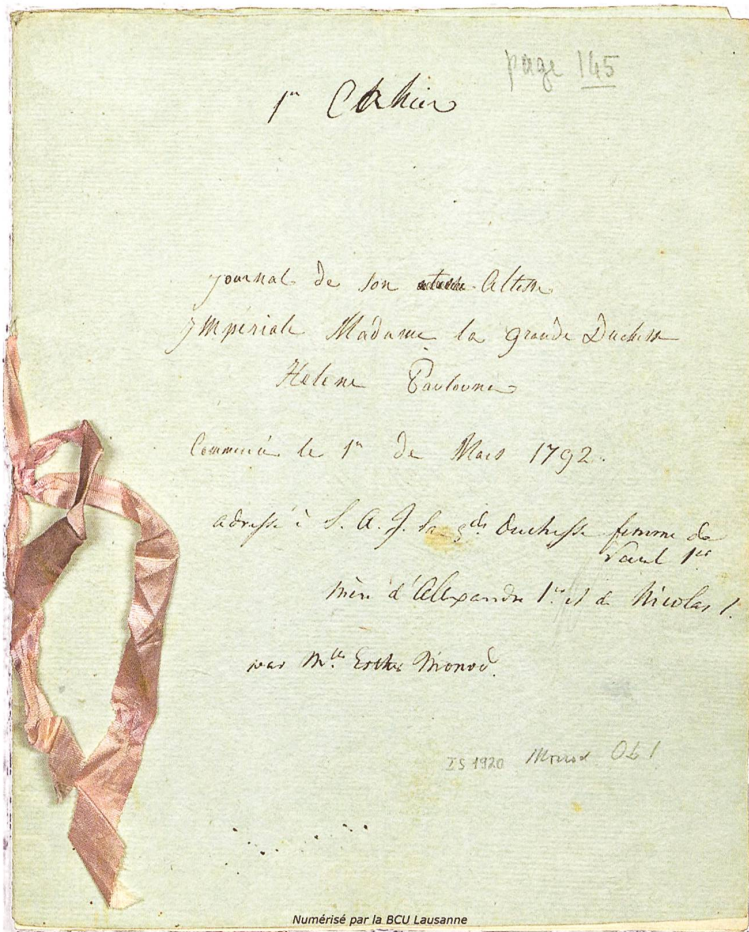 page 145
1er Cahier
Journal de son Altesse
Impériale Madame la grande Duchesse
Helene Paulovna
Commencé le 1er de Mars 1792.
adressé à S. A. I. la gde Duchesse femme de
Paul 1er
mère d'Alexandre 1er et de Nicolas 1.
par Mlle Esther Monod.
IS 1920 Monod
Numérisé par la BCU Lausanne